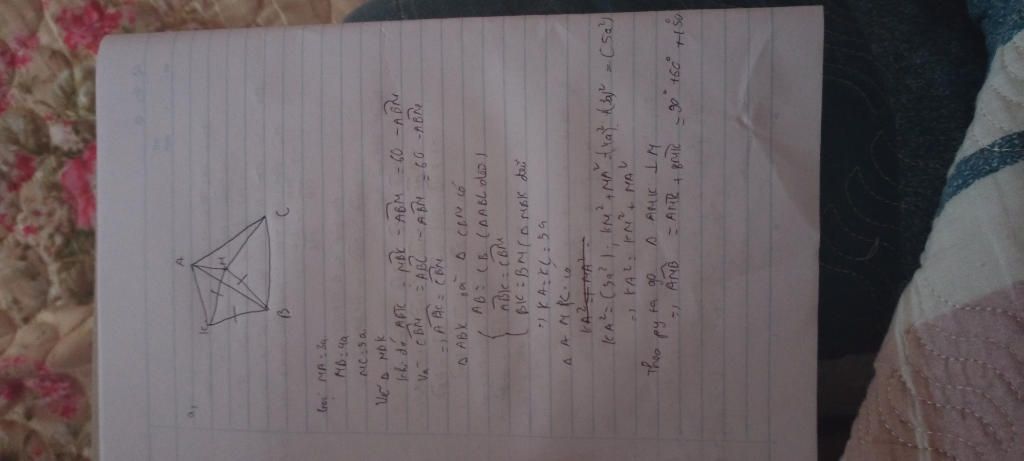 a,
A
K
M
B
C
Gọi MA = 3a
MB = 4a
MC = 5a
Vẽ Δ MBK
khi đó ABK = MBK - ABM = 60 - ABM
Và CBM = ABC - ABM = 60 - ABM
=> ABK = CBM
Δ ABK và Δ CBM có
AB = CB (Δ ABC đều)
ABK = CBM
BK = BM (Δ MBK đều
=> KA = KC = 5a
Δ AMK có
KA² = MA²
KA² = (5a²); KM² + MA² = (4a)² + (3a)² = (5a²)
=> KA² = KM² + MA²
Theo py ta go Δ AMK ⊥ M
=> AMB = AMK + BMK = 90° + 60° = 150